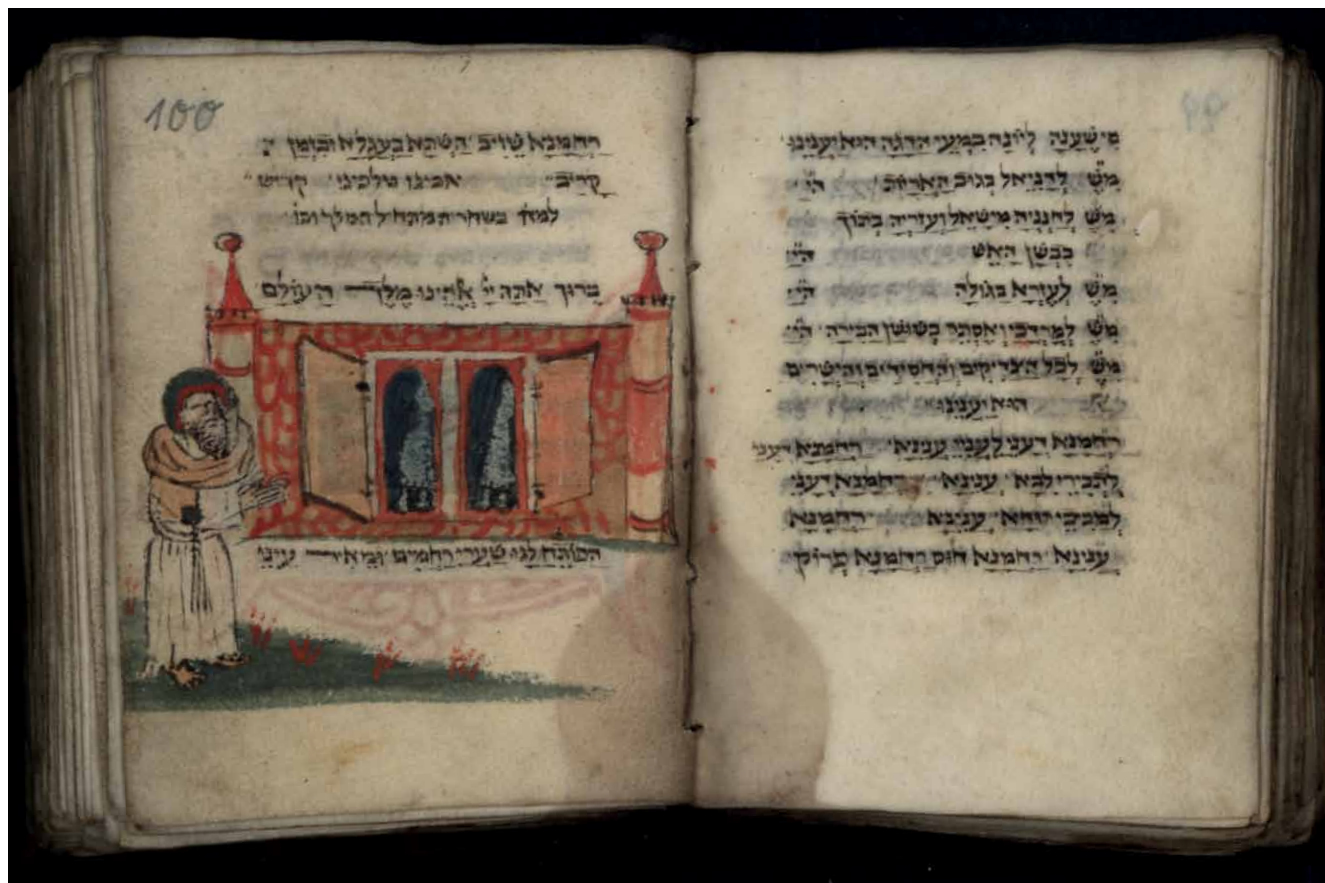 מִי שֶׁעָנָה לְיוֹנָה בִּמְעֵי הַדָּגָה הוּא יַעֲנֵינוּ
מִ״שֶׁ לְדָנִיאֵל בְּגוֹב הָאֲרָיוֹת הוּ״י
מִ״שֶׁ לַחֲנַנְיָה מִישָׁאֵל וַעֲזַרְיָה בְּתוֹךְ
כִּבְשַׁן הָאֵשׁ הוּ״י
מִ״שֶׁ לְעֶזְרָא בַּגּוֹלָה הוּ״י
מִ״שֶׁ לְמָרְדֳּכַי וְאֶסְתֵּר בְּשׁוּשַׁן הַבִּירָה הוּ״י
מִ״שֶׁ לְכָל הַצַּדִּיקִים וְהַחֲסִידִים וְהַיְשָׁרִים
הוּא יַעֲנֵינוּ
רַחֲמָנָא דְעָנֵי לַעֲנִיֵּי עֲנֵינָא רַחֲמָנָא דְעָנֵי
לִתְבִירֵי לִבָּא עֲנֵינָא רַחֲמָנָא דְעָנֵי
לְמַכִּיכֵי רוּחָא עֲנֵינָא רַחֲמָנָא
עֲנֵינָא רַחֲמָנָא חוּס רַחֲמָנָא פְּרוֹק
100
רַחֲמָנָא שֵׁוֹיב הַשְׁתָּא בַּעֲגָלָא וּבִזְמַן
קָרִיב אבינו מלכינו קדיש
למחר בשחרית מתחיל המלך וכו
בָּרוּךְ אַתָּה יְיָ אֱלֹהֵינוּ מֶלֶךְ הָעוֹלָם
הַפּוֹתֵחַ לָנוּ שַׁעֲרֵי רַחֲמִים וּמֵאִיר עֵינֵי